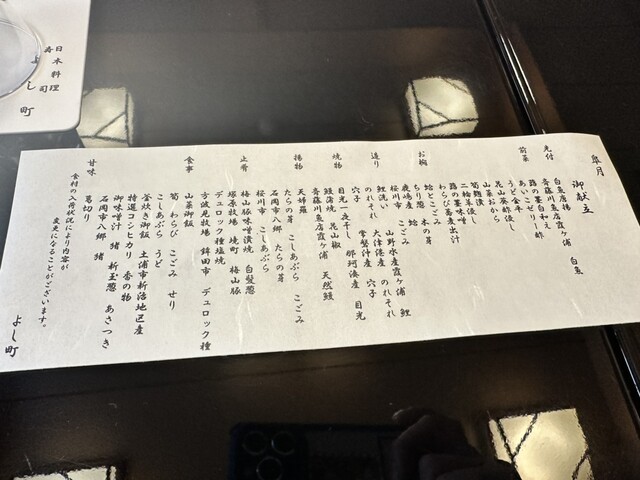 日本料理
寿司
よし町
皐月
御献立
先付
白魚唐揚
斉藤川魚店霞ヶ浦 白魚
蕗の薹白和え
あいこゼリー酢
前菜
うど金平
花山葵酢浸し
山菜おから
筍麹漬
二輪草浸し
蕗の薹味噌
わらび蕎麦出汁
お椀
蛤とこごみ
ちり葱 木の芽
鹿嶋産 蛤
桜川市 こごみ
山野水産霞ヶ浦 鯉
造り
鯉洗い
のれそれ 大津港産 のれそれ
穴子 常磐沖産 穴子
那珂湊産 目光
焼物
目光一夜干し
鰻蒲焼 花山椒
斉藤川魚店霞ヶ浦 天然鰻
揚物
天婦羅
たらの芽 こしあぶら こごみ
石岡市八郷 たらの芽
桜川市 こしあぶら
止肴
梅山豚味噌漬焼 白髪葱
塚原牧場 境町 梅山豚
デュロック種塩焼
方波見牧場 鉾田市 デュロック種
食事
山菜御飯
筍 わらび こごみ せり
こしあぶら うど
釜炊き御飯 土浦市新治地区産
特選コシヒカリ 香の物
御味噌汁 猪 新玉葱 あさつき
石岡市八郷 猪
甘味
葛切り
食材の入荷状況により内容が
変更になることがございます。
よし町